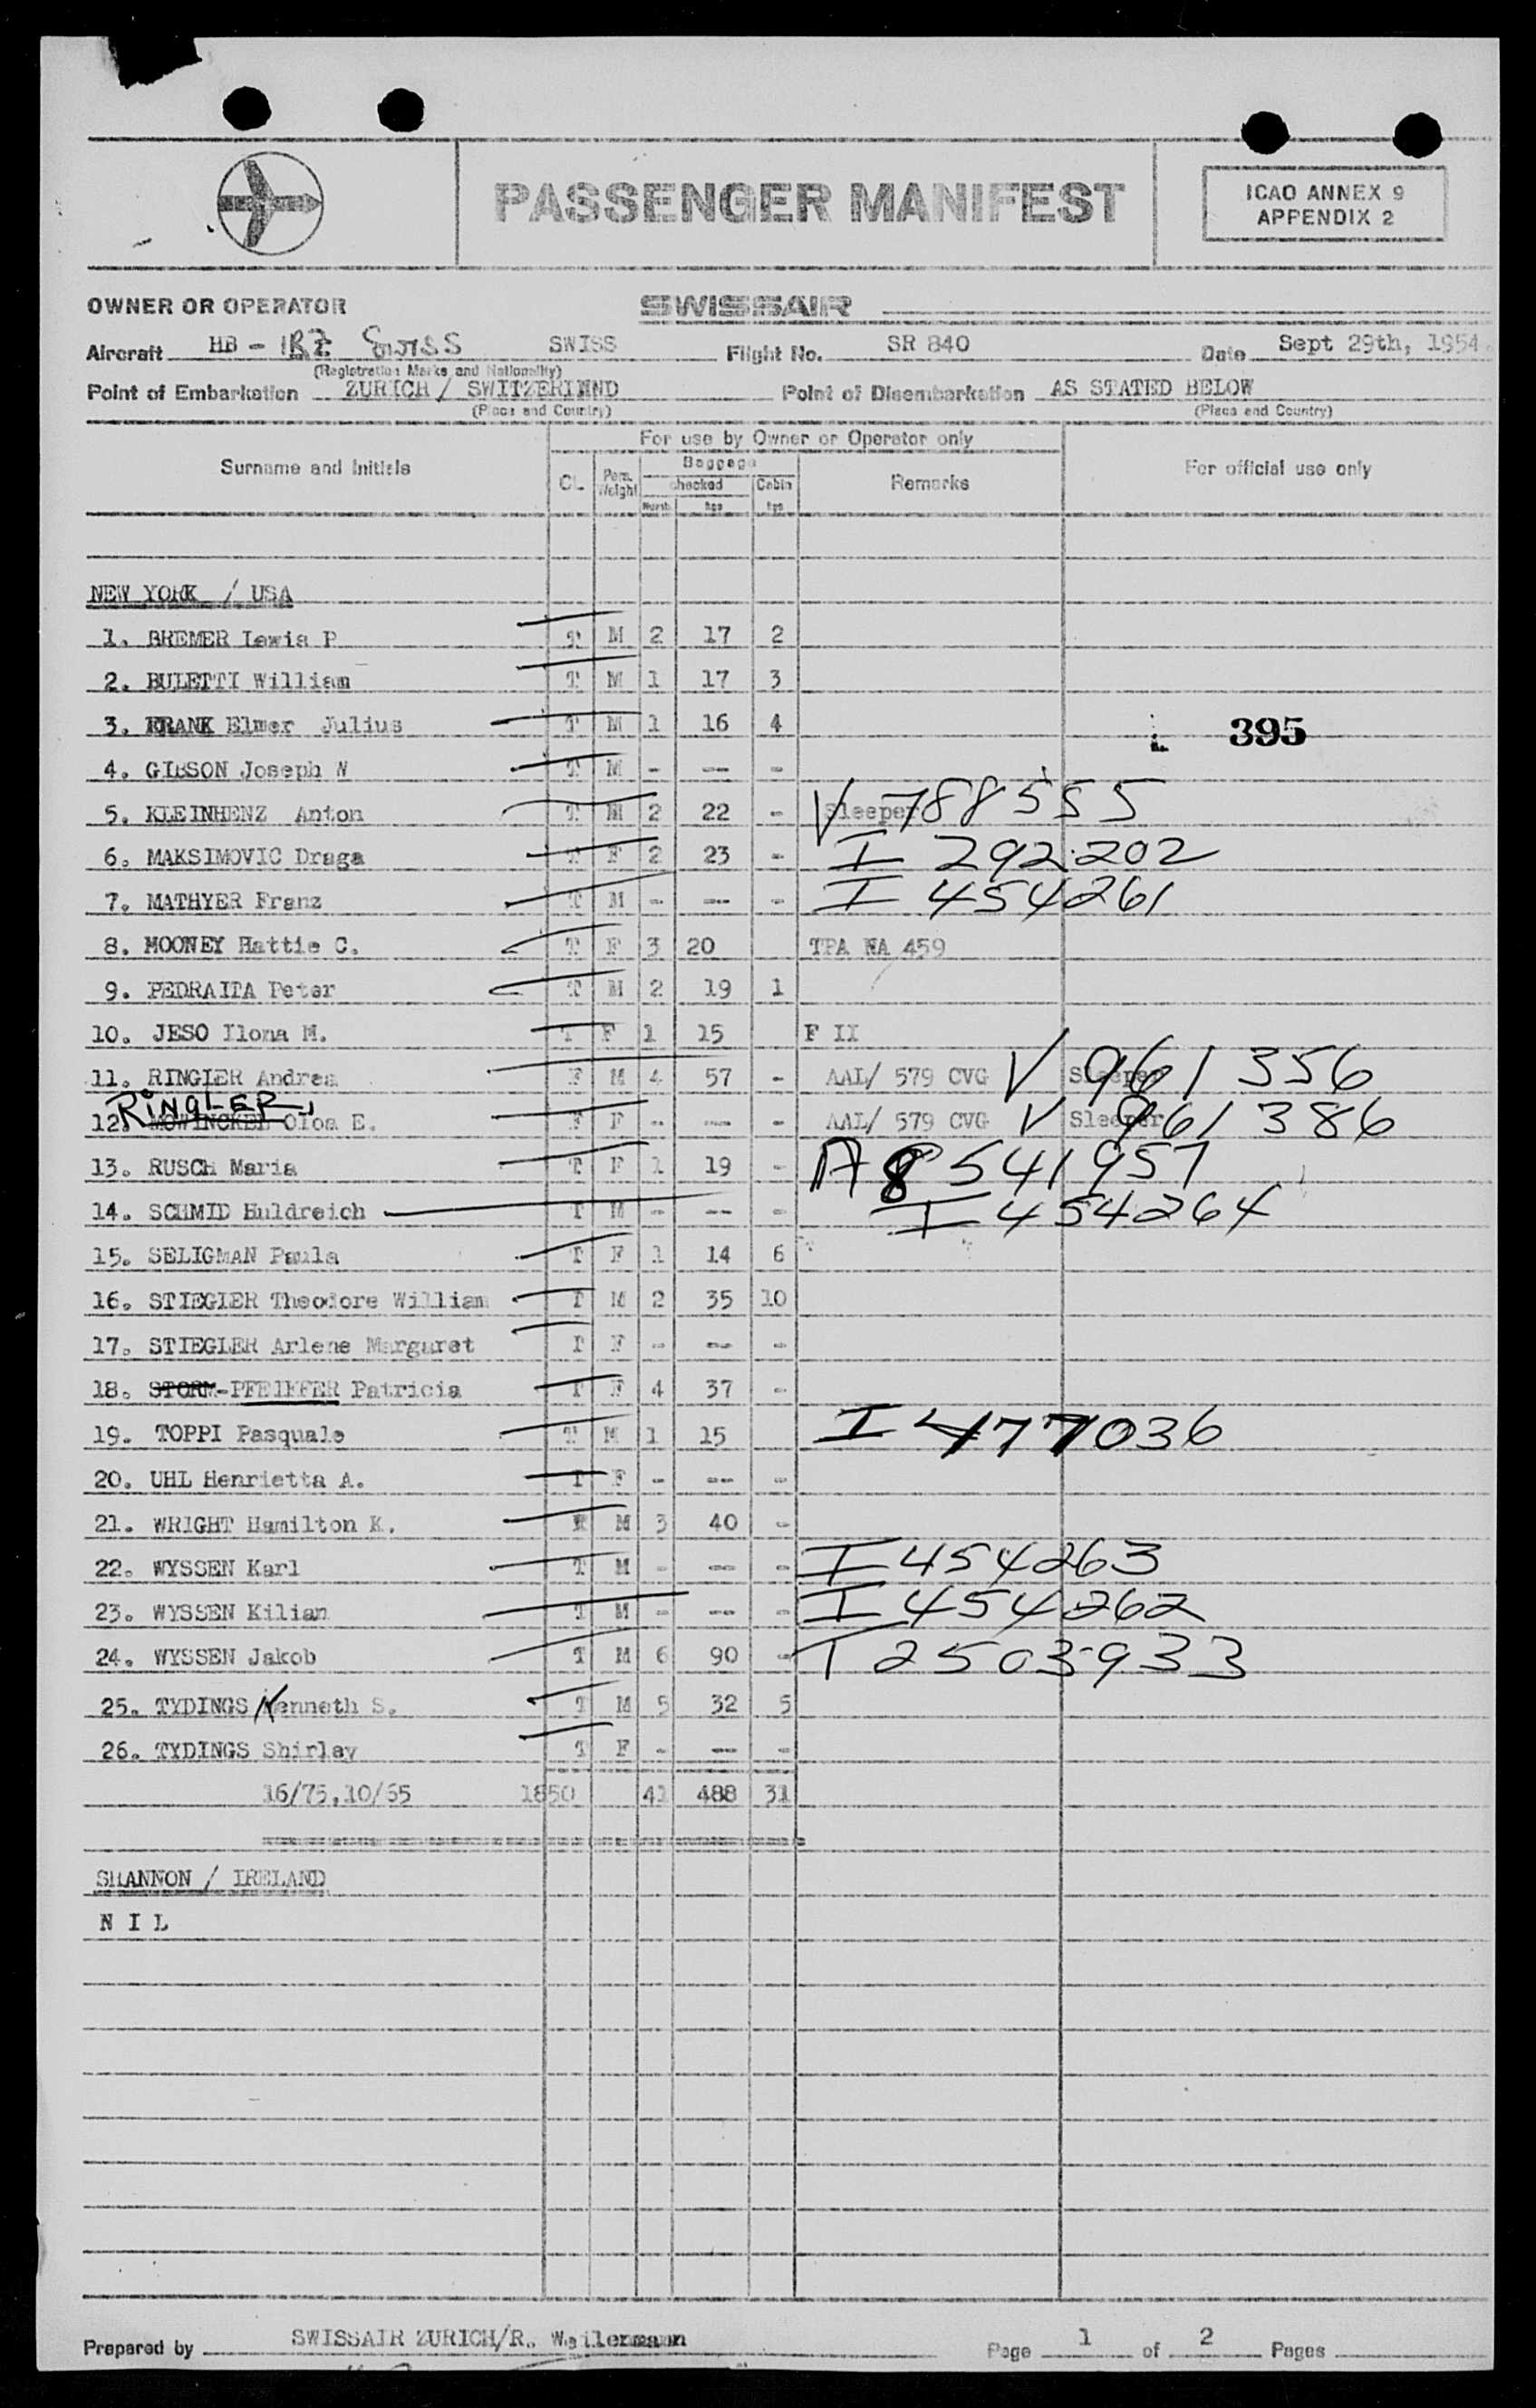 PASSENGER MANIFEST
ICAO ANNEX 9
APPENDIX 2
OWNER OR OPERATOR SWISSAIR
Aircraft HB - Swiss SWISS Flight No. SR 840 Date Sept 29th, 1954.
(Registration Marks and Nationality)
Point of Embarkation ZURICH / Point of Disembarkation AS STATED BELOW
(Place and Country) (Place and Country)
For use by Owner or Operator only
Surname and Initials CL Pers. Weight Baggage checked Cabin Remarks For official use only
NEW YORK / USA
1. BREMER Lewis P T M 2 17 2
2. BULETTI William T M 1 17 3
3. FRANK Elmer Julius T M 1 16 4 395
4. GIBSON Joseph W T M - -- -
5. KLEINHENZ Anton T M 2 22 - Sleeper V 788555
6. MAKSIMOVIC Draga T F 2 23 - I 292202
7. MATHYER Franz T M - -- - I 454261
8. MOONEY Hattie C. T F 3 20 TPA NA 459
9. PEDRAITA Peter T M 2 19 1
10. JESO Ilona M. T F 1 15 F II
11. RINGIER Andrea F M 4 57 - AAL/ 579 CVG Sleeper V 961356
RINGLER,
12. MOWINCKEL E. F F - -- - AAL/ 579 CVG Sleeper V 961386
13. RUSCH Maria T F 1 19 - A8541957
14. SCHMID Huldreich T M - -- - I 454264
15. SELIGMAN Paula T F 1 14 6
16. STIEGLER Theodore William T M 2 35 10
17. STIEGLER Arlene Margaret T F - -- -
18. STORM-PFEIFFER Patricia T F 4 37 -
19. TOPPI Pasquale T M 1 15 I 477036
20. UHL Henrietta A. T F - -- -
21. WRIGHT Hamilton K. M 3 40 -
22. WYSSEN Karl T M - -- - I 454263
23. WYSSEN Kilian T M - -- - I 454262
24. WYSSEN Jakob T M 6 90 - T 2503933
25. TYDINGS Kenneth S. T M 5 32 5
26. TYDINGS Shirley T F - -- -
16/75,10/65 1850 41 488 31
SHANNON / IRELAND
N I L
Prepared by SWISSAIR ZURICH/R. Weilermann Page 1 of 2 Pages